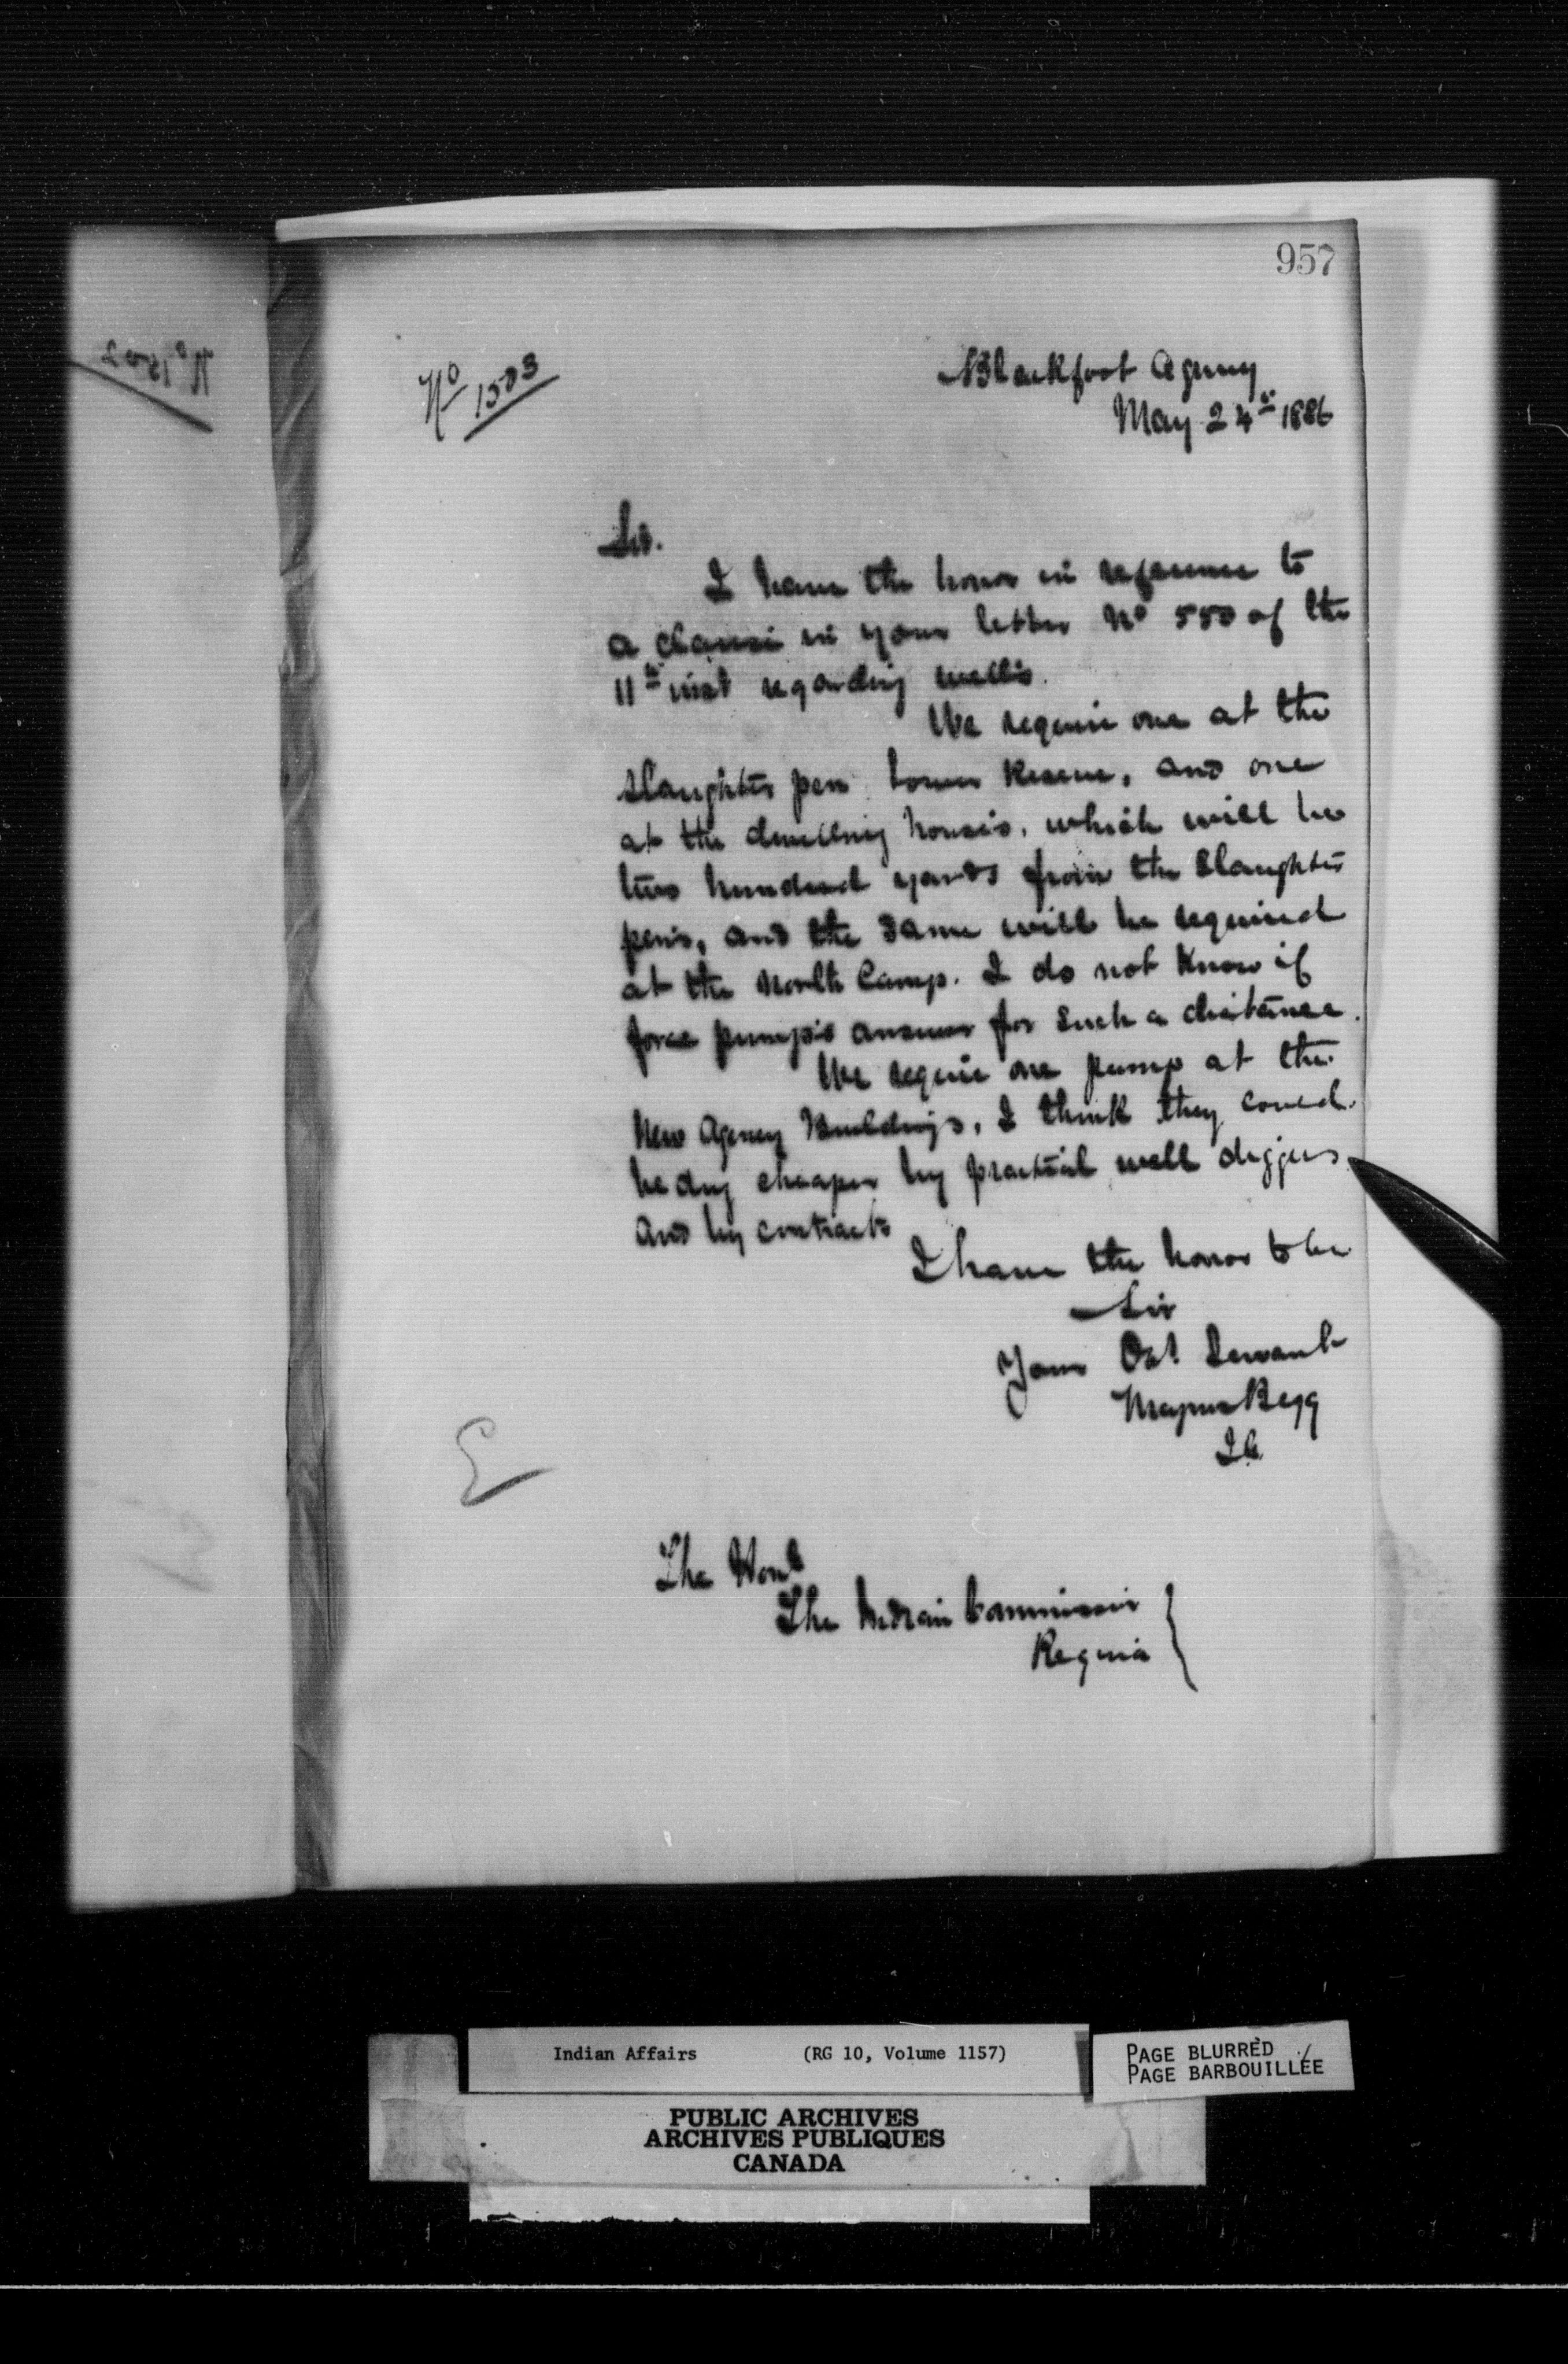 957
No 1503
Blackfoot Agency
May 24th 1886
Sir.
I have the honor in reference to
a clause in your letter No 550 of the
11th inst regarding wells.
We require one at the
slaughter pen lower Reserve, and one
at the dwelling houses, which will be
two hundred yards from the Slaughter
pens, and the same will be required
at the North Camp. I do not know if
force pumps answer for such a distance.
We require one pump at the
New Agency Buildings, I think they could
be dug cheaper by practical well diggers
and by contract
I have the honor to be
Sir
Your Obt Servant
Magnus Begg
I.A.
The Honl
The Indian Commissioner
Regina
Indian Affairs (RG 10, Volume 1157)
PAGE BLURRED
PAGE BARBOUILLÉE
PUBLIC ARCHIVES
ARCHIVES PUBLIQUES
CANADA